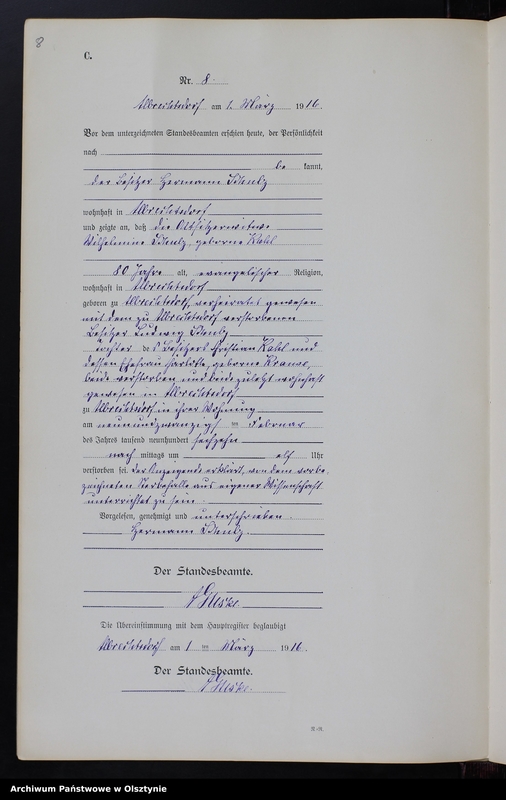 8
C.
Nr. 8
Albrechtsdorf am 1. März 1916.
Vor dem unterzeichneten Standesbeamten erschien heute, der Persönlichkeit
nach
be kannt,
der Besitzer Hermann Schulz
wohnhaft in Albrechtsdorf
und zeigte an, daß die Altsitzerwitwe
Wilhelmine Schulz, geborne Kahl
80 Jahre alt, evangelischer Religion,
wohnhaft in Albrechtsdorf
geboren zu Albrechtsdorf, verheiratet gewesen
mit dem zu Albrechtsdorf verstorbenen
Besitzer Ludwig Schulz
Tochter des Besitzers Christian Kahl und
dessen Ehefrau geborne
beide verstorben und beide zuletzt wohnhaft
gewesen in Albrechtsdorf
zu Albrechtsdorf in ihrer Wohnung
am neunundzwanzigsten Februar
des Jahres tausend neunhundert sechzehn
nach mittags um elf Uhr
verstorben sei. Der Anzeigende erklärt, von dem vorbe
zeichneten Sterbefalle aus eigener Wissenschaft
unterrichtet zu sein.
Vorgelesen, genehmigt und unterschrieben.
Hermann Schulz.
Der Standesbeamte.
Die Übereinstimmung mit dem Hauptregister beglaubigt
Albrechtsdorf am 1 ten März 1916.
Der Standesbeamte.
Archiwum Państwowe w Olsztynie